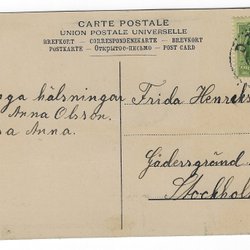 CARTE POSTALE
UNION POSTALE UNIVERSELLE
BREFKORT — CORRESPONDENZKARTE — BREVKORT
POSTKARTE — Открытое-письмо — POST CARD
nga hälsningar
Anna Olsson.
a Anna.
Frida Henriks
Jädersgränd
Stockhol